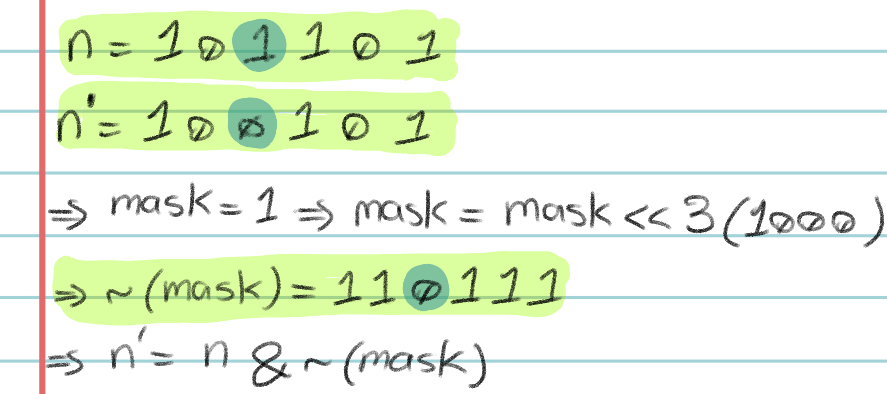 n = 101101
n' = 100101
⇒ mask = 1 ⇒ mask = mask << 3 (1000)
⇒ ~(mask) = 110111
⇒ n' = n & ~(mask)